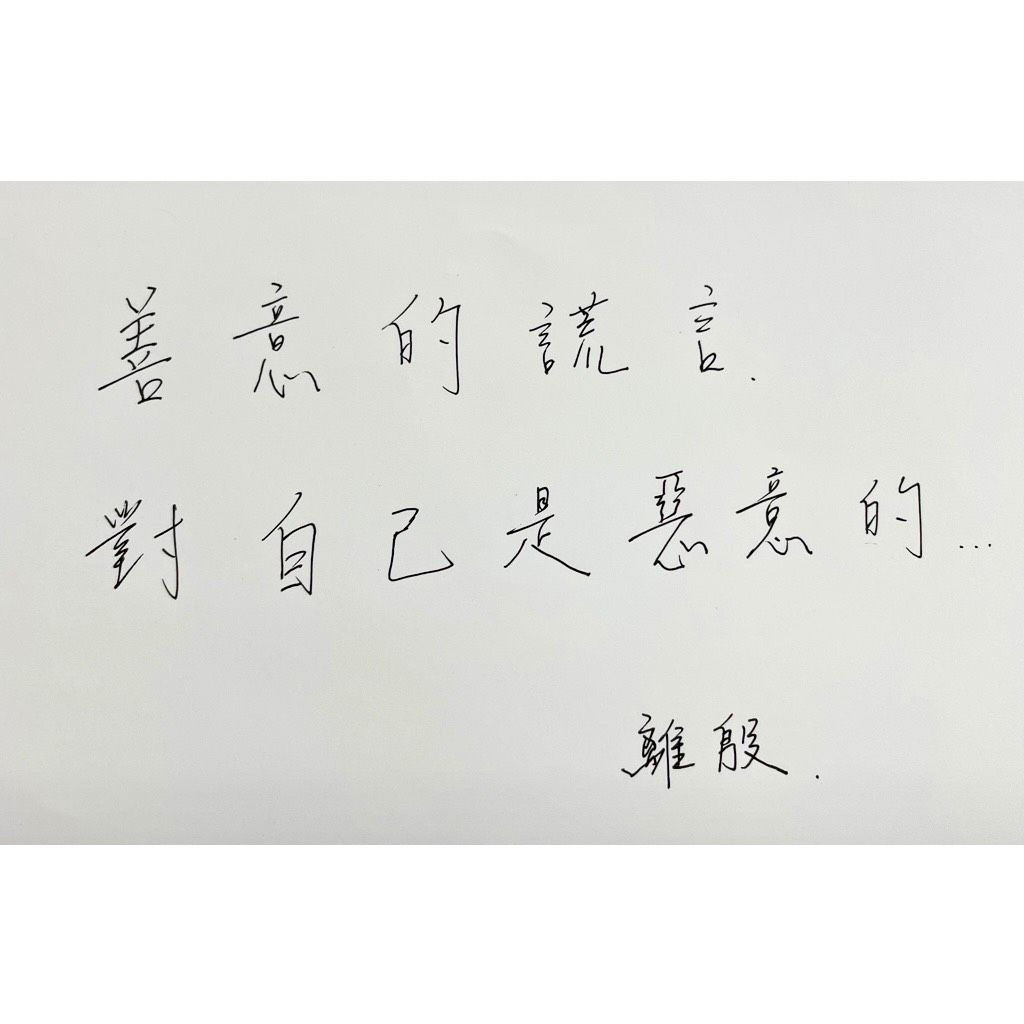 善意的謊言.
對自己是惡意的...
離殷.